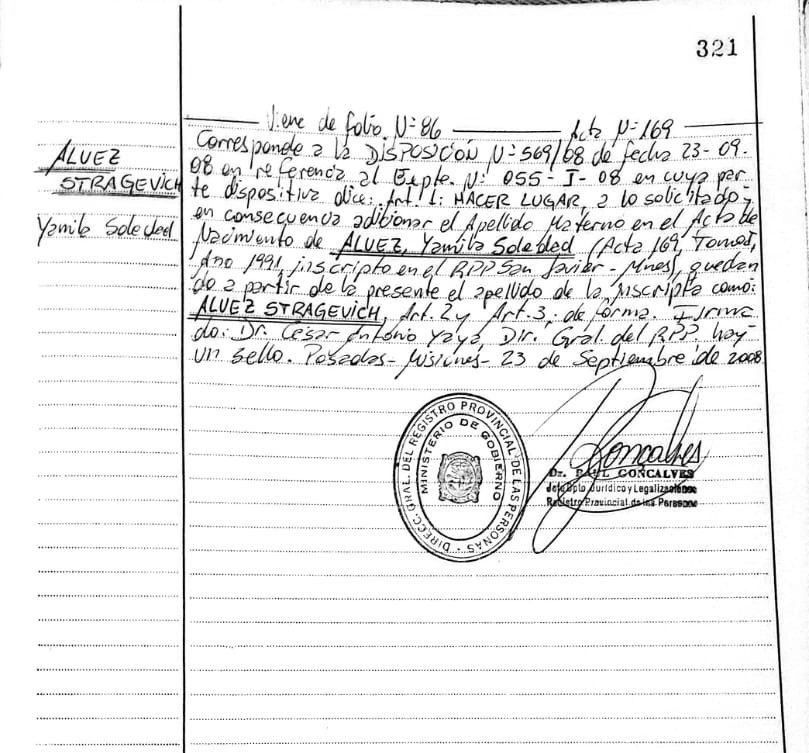 321
Viene de folio Nº 86 Acta Nº 169
ALVEZ
STRAGEVICH
Yamila Soledad
Corresponde a la DISPOSICIÓN Nº 569/08 de fecha 23-09-
08 en referencia al Expte. Nº 055-I-08 en cuya par
te dispositiva dice: Art. 1: HACER LUGAR, a lo solicitado y
en consecuencia adicionar el Apellido Materno en el Acta de
Nacimiento de ALVEZ, Yamila Soledad (Acta 169, Tomo I,
Año 1991, inscripto en el RPP San Javier - Mnes, quedan
do a partir de la presente el apellido de la inscripta como:
ALVEZ STRAGEVICH, Art. 2 y Art. 3, de forma. Firma
do: Dr. César Antonio Yaya, Dir. Gral. del RPP. hay
un sello. Posadas - Misiones - 23 de Septiembre de 2008
DIRECC. GRAL. DEL REGISTRO PROVINCIAL DE LAS PERSONAS
MINISTERIO DE GOBIERNO
Goncalves
Dr. RAUL GONCALVES
Jefe Dpto Jurídico y Legalizaciones
Registro Provincial de las Personas